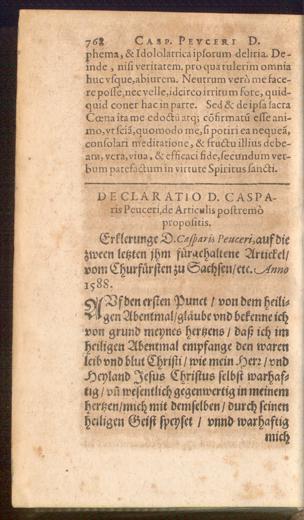 768 CASP. PEVCERI D.
phema, & Idololatrica ipsorum deliria. De-
inde, nisi veritatem, pro qua tulerim omnia
huc vsque, abiurem. Neutrum verò me face-
re posse, nec velle, idcirco irritum fore, quid-
quid coner hac in parte. Sed & de ipsa sacra
Cœna ita me edoctū atq; cōfirmatū esse ani-
mo, vt sciā, quomodo me, si potiri ea nequeā,
consolari meditatione, & fructu illius debe-
am, vera, viua, & efficaci fide, secundum ver-
bum patefactum in virtute Spiritus sancti.
DECLARATIO D. CASPA-
ris Peuceri, de Articulis postremò
propositis.
Erklerunge D. Casparis Peuceri, auf die
zween letzten jhm fürgehaltene Artickel/
vom Churfürsten zu Sachsen/etc. Anno
1588.
AVf den ersten Punct / von dem heili-
gen Abentmal/glaube vnd bekenne ich
von grund meynes hertzens / daß ich im
heiligen Abentmal empfange den waren
leib vnd blut Christi / wie mein Herr / vnd
Heyland Jesus Christus selbst warhaf-
tig / vñ wesentlich gegenwertig in meinem
hertzen/mich mit demselben / durch seinen
heiligen Geist speyset / vnnd warhaftig
mich